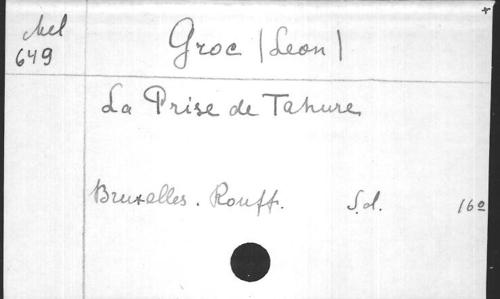 Mel
649
Groc (Leon)
La Prise de Tahure
Bruxelles. Rouff. S.d. 16º